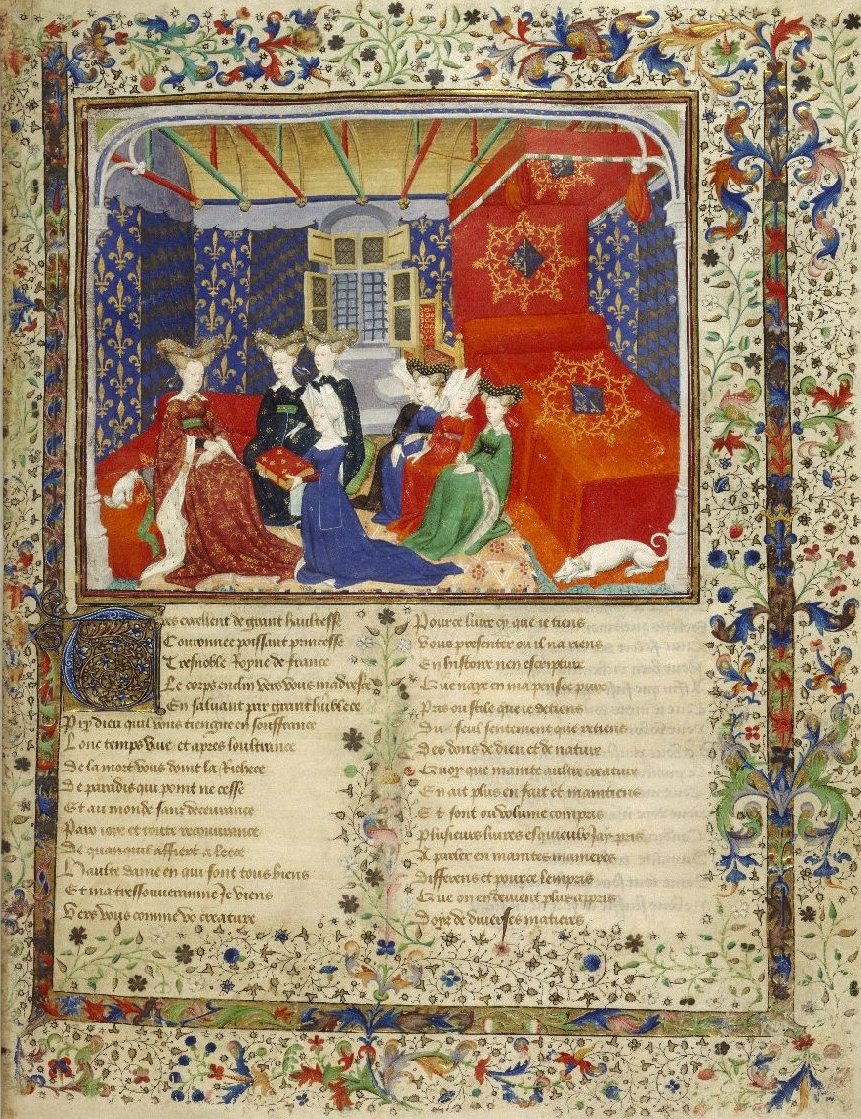 Tres excellent de grant haultesse
Couronnee poissant princesse
Tresnoble Royne de france
Le corps enclin vers vous madresce
En saluant par grant humblece
Pry dieu quil vous tiengne en souffrance
Lonc temps vive et apres loultrance
De la mort vous doint la Richece
De paradis qui point ne cesse
Et au monde sans decevrance
Paix ioye et toute recouvrance
De quanquil affiert a leece
Haulte dame en qui sont tous biens
Et ma tressouverainne Je viens
Vers vous comme vo creature
Pource livre cy que ie tiens
Vous presenter ou il na riens
En histoire nen escripture
Que naye en ma pensee pure
Pris ou stile que ie detiens
Du seul sentement que retiens
Des dons de dieu et de nature
Quoy que mainte aultre creature
En ait plus en fait et maintiens
Et sont ou volume compris
Plusieurs livres esquieulx Jay pris
A parler en maintes manieres
Differens et pource lempris
Que on en devient plus appris
Doyr de diverses matieres